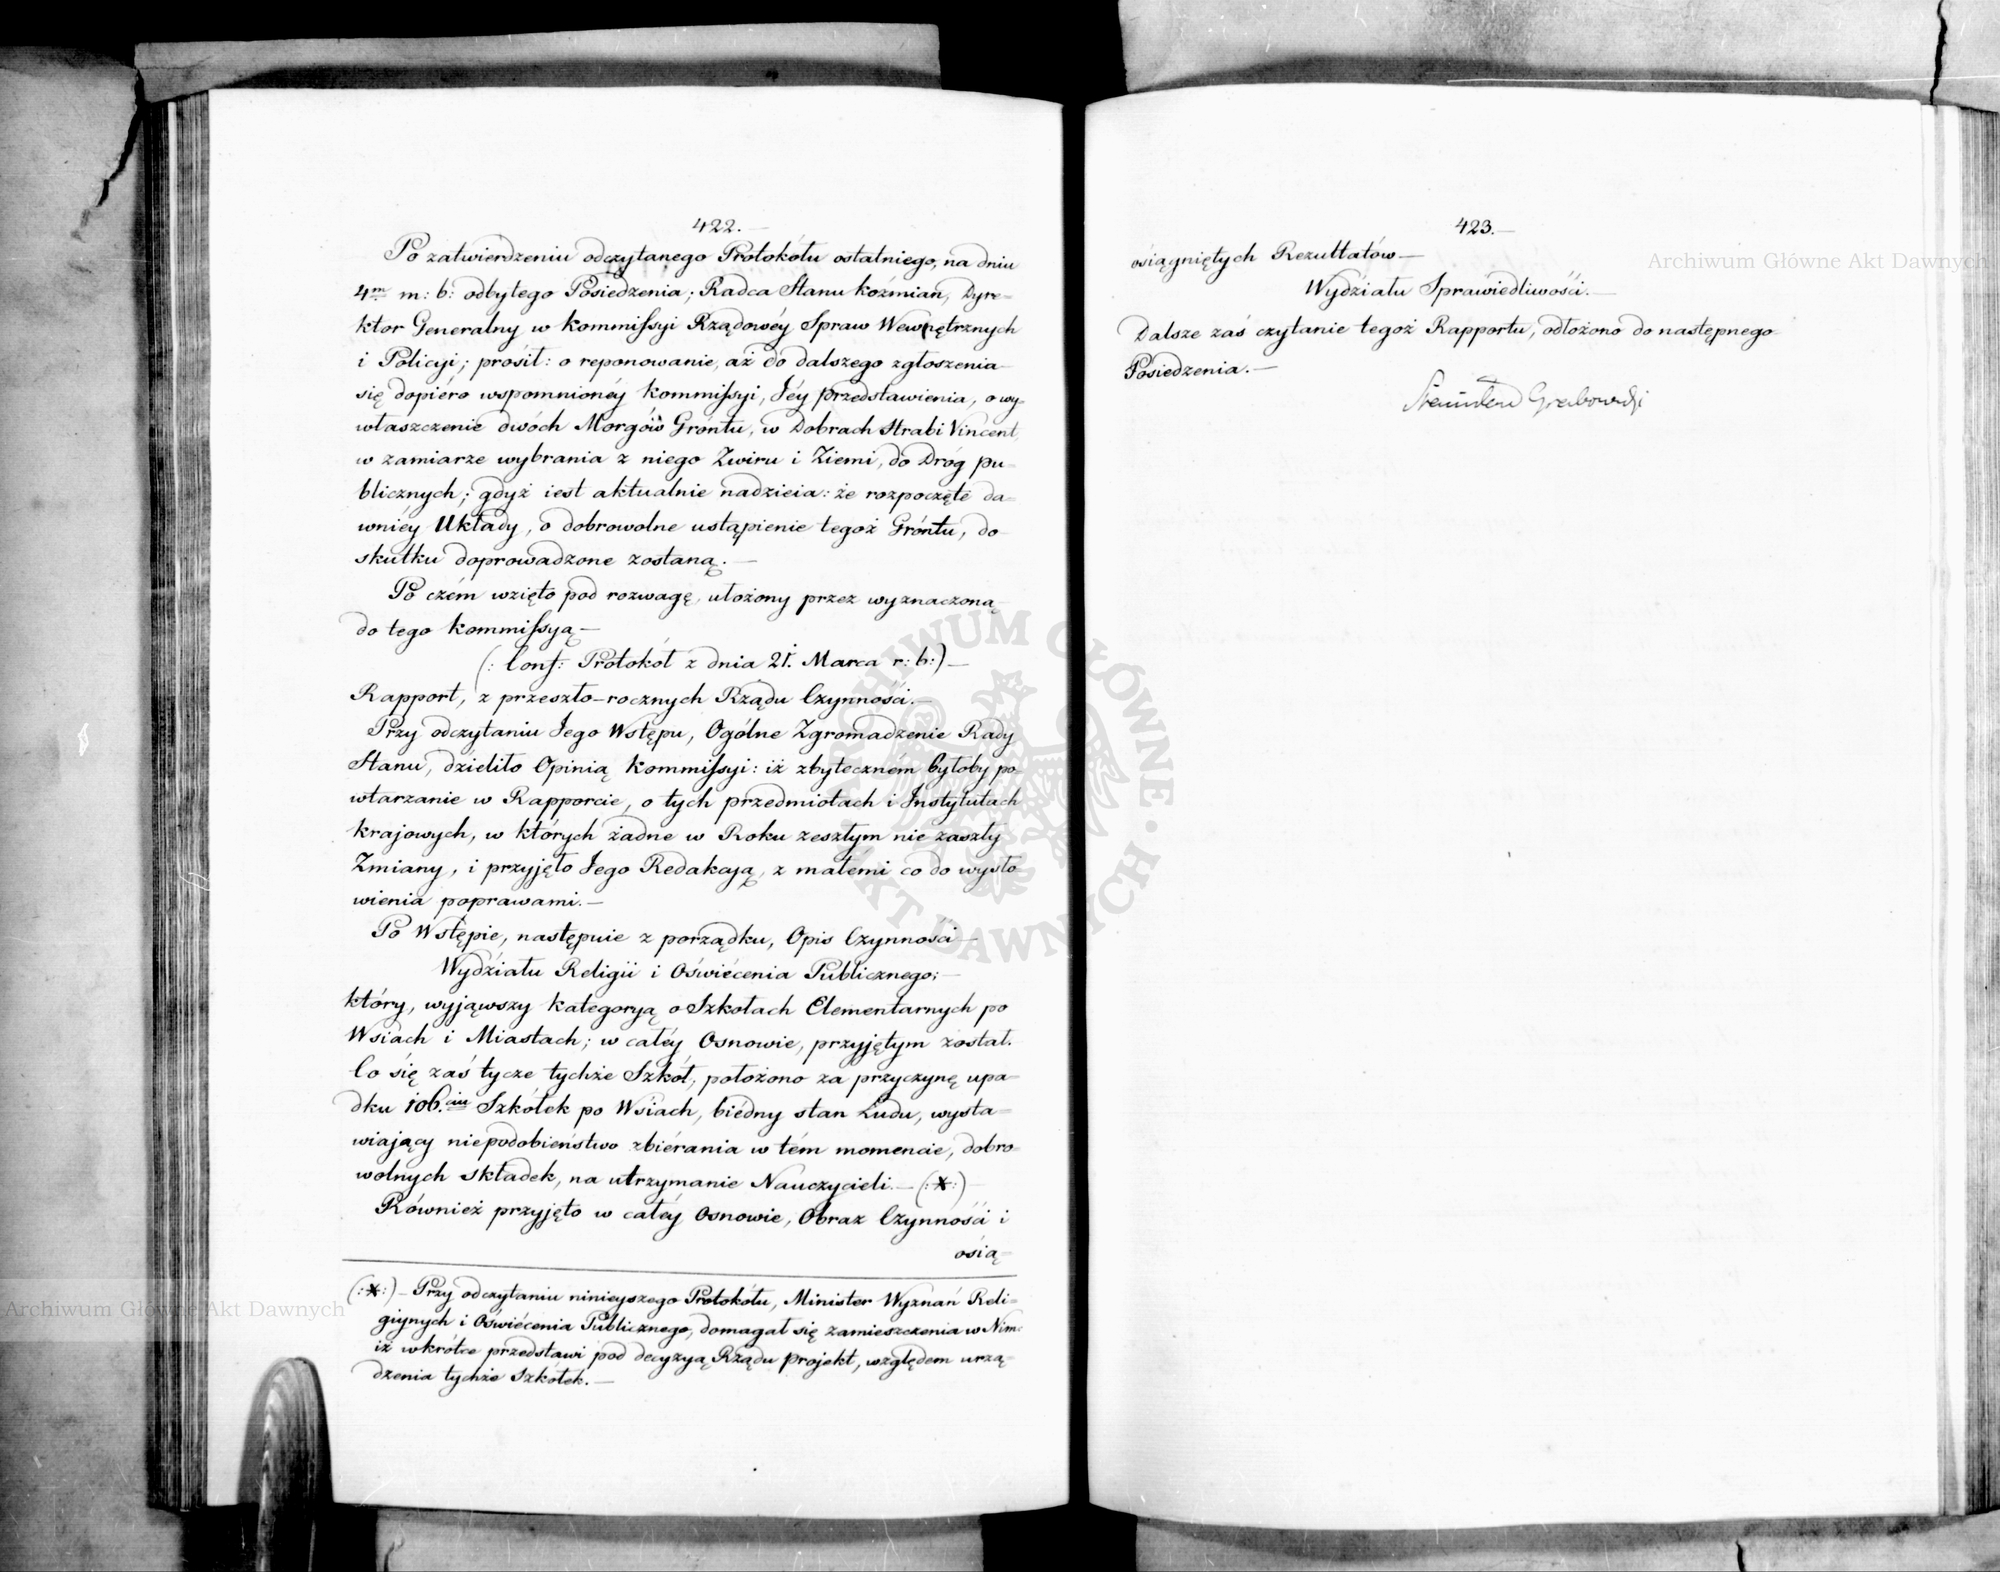 422.
Po zatwierdzeniu odczytanego Protokółu ostalniego, na dniu
4m m: b: odbytego Posiedzenia; Radca Stanu Koźmian, Dyre=
ktor Generalny w Kommissyi Rządowéy Spraw Wewnętrznych
i Policyi; prosił: o reponowanie, aż do dalszego zgłoszenia
się dopiéro wspomnionéy Kommissyi, Jéy przedstawienia, o wy=
właszczenie dwóch Morgów Grontu, w Dobrach Hrabi Vincent,
w zamiarze wybrania z niego Zwiru i Ziemi, do Dróg pu=
blicznych; gdyż iest aktualnie nadzieia: że rozpoczęte da=
wniéy Układy, o dobrowolne ustąpienie tegoż Gróntu, do
skutku doprowadzone zostaną.—
Po czém wzięto pod rozwagę, ułożony przez wyznaczoną
do tego Kommissyą—
(: Conf: Protokół z dnia 21. Marca r: b:)—
Rapport, z przeszło-rocznych Rządu Czynności.—
Przy odczytaniu Jego Wstępu, Ogólne Zgromadzenie Rady
Stanu, dzieliło Opinią Kommissyi: iż zbyteczném byłoby po=
wtarzanie w Rapporcie, o tych przedmiotach i Instytutach
krajowych, w których żadne w Roku zeszłym nie zaszły
Zmiany, i przyjęło Jego Redakcją, z małemi co do wysło
wienia poprawami.—
Po Wstępie, następuie z porządku, Opis Czynności—
Wydziału Religii i Oświécenia Publicznego;—
który, wyjąwszy kategoryą o Szkołach Elementarnych po
Wsiach i Miastach; w całéy Osnowie, przyjętym został.
Co się zaś tycze tychże Szkół, położono za przyczynę upa=
dku 106.ciu Szkółek po Wsiach, biédny stan Ludu, wysta=
wiający niepodobieństwo zbiérania w tém momencie, dobro=
wolnych składek, na utrzymanie Nauczycieli.—(:*:)—
Również przyjęto w całéy Osnowie, Obraz Czynności i
osią=
(:*:)—Przy odczytaniu ninieyszego Protokółu, Minister Wyznań Reli=
giynych i Oświécenia Publicznego, domagał się zamieszczenia w Nim:
iż wkrótce przedstawi pod decyzyą Rządu projekt, względem urzą=
dzenia tychże Szkółek.—
423.—
osiągniętych Rezultatów—
Wydziału Sprawiedliwości.—
Dalsze zaś czytanie tegoż Rapportu, odłożono do następnego
Posiedzenia.—
Stanisław Grabowski
Archiwum Główne Akt Dawnych
Archiwum Główne Akt Dawnych
ARCHIWUM GŁÓWNE · AKT DAWNYCH ·